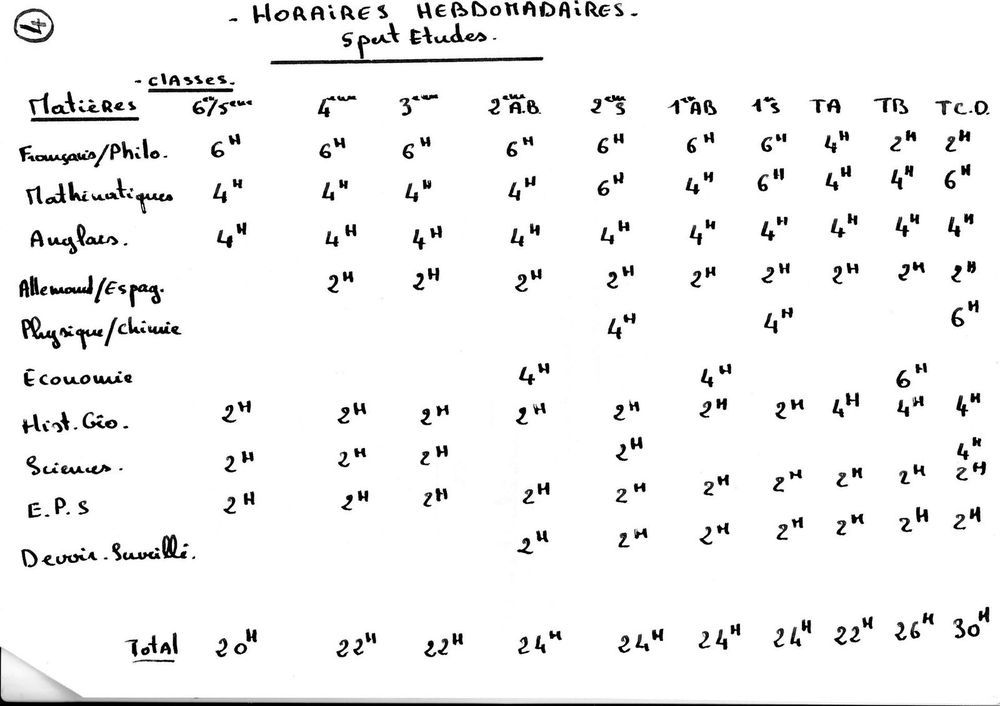 14
- HORAIRES HEBDOMADAIRES.
Sport Etudes.
- Classes.
Matières 6e/5eme 4eme 3eme 2eme A.B. 2eme S 1ere AB 1ere S TA TB TC.D.
Français/Philo. 6H 6H 6H 6H 6H 6H 6H 4H 2H 2H
Mathématiques 4H 4H 4H 4H 6H 4H 6H 4H 4H 6H
Anglais. 4H 4H 4H 4H 4H 4H 4H 4H 4H 4H
Allemand/Espag. 2H 2H 2H 2H 2H 2H 2H 2H 2H
Physique/Chimie 4H 4H 6H
Economie 4H 4H 6H
Hist. Géo. 2H 2H 2H 2H 2H 2H 2H 4H 4H 4H
Sciences. 2H 2H 2H 2H 4H
E.P.S 2H 2H 2H 2H 2H 2H 2H 2H 2H 2H
Devoir. Surveillé. 2H 2H 2H 2H 2H 2H 2H
Total 20H 22H 22H 24H 24H 24H 24H 22H 26H 30H